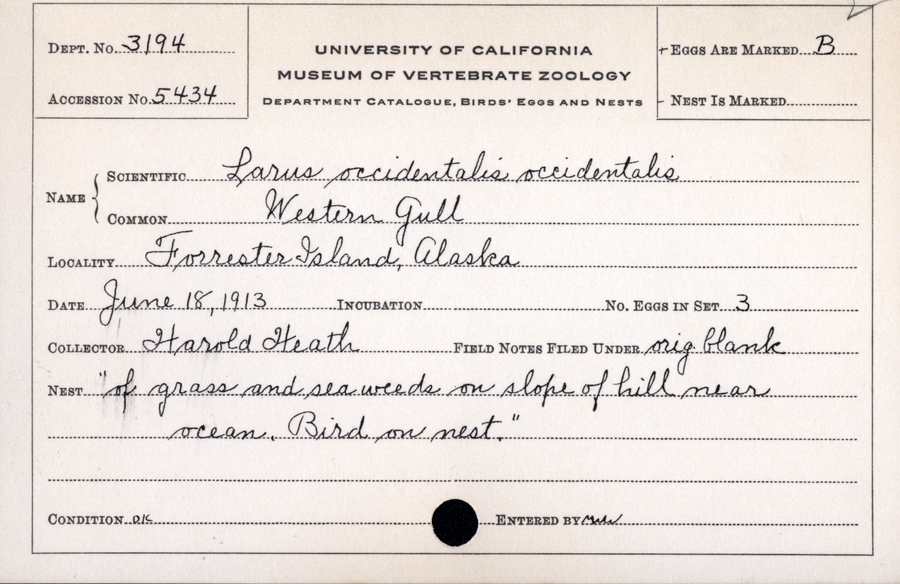 Dept. No. 3194
Accession No. 5434
UNIVERSITY OF CALIFORNIA
MUSEUM OF VERTEBRATE ZOOLOGY
Department Catalogue, Birds' Eggs and Nests
+ Eggs Are Marked B
- Nest Is Marked
Name { Scientific Larus occidentalis occidentalis
Common Western Gull
Locality Forrester Island, Alaska
Date June 18, 1913 Incubation No. Eggs in Set 3
Collector Harold Heath Field Notes Filed Under orig. blank
Nest "of grass and sea weeds on slope of hill near
ocean. Bird on nest."
Condition OK Entered by